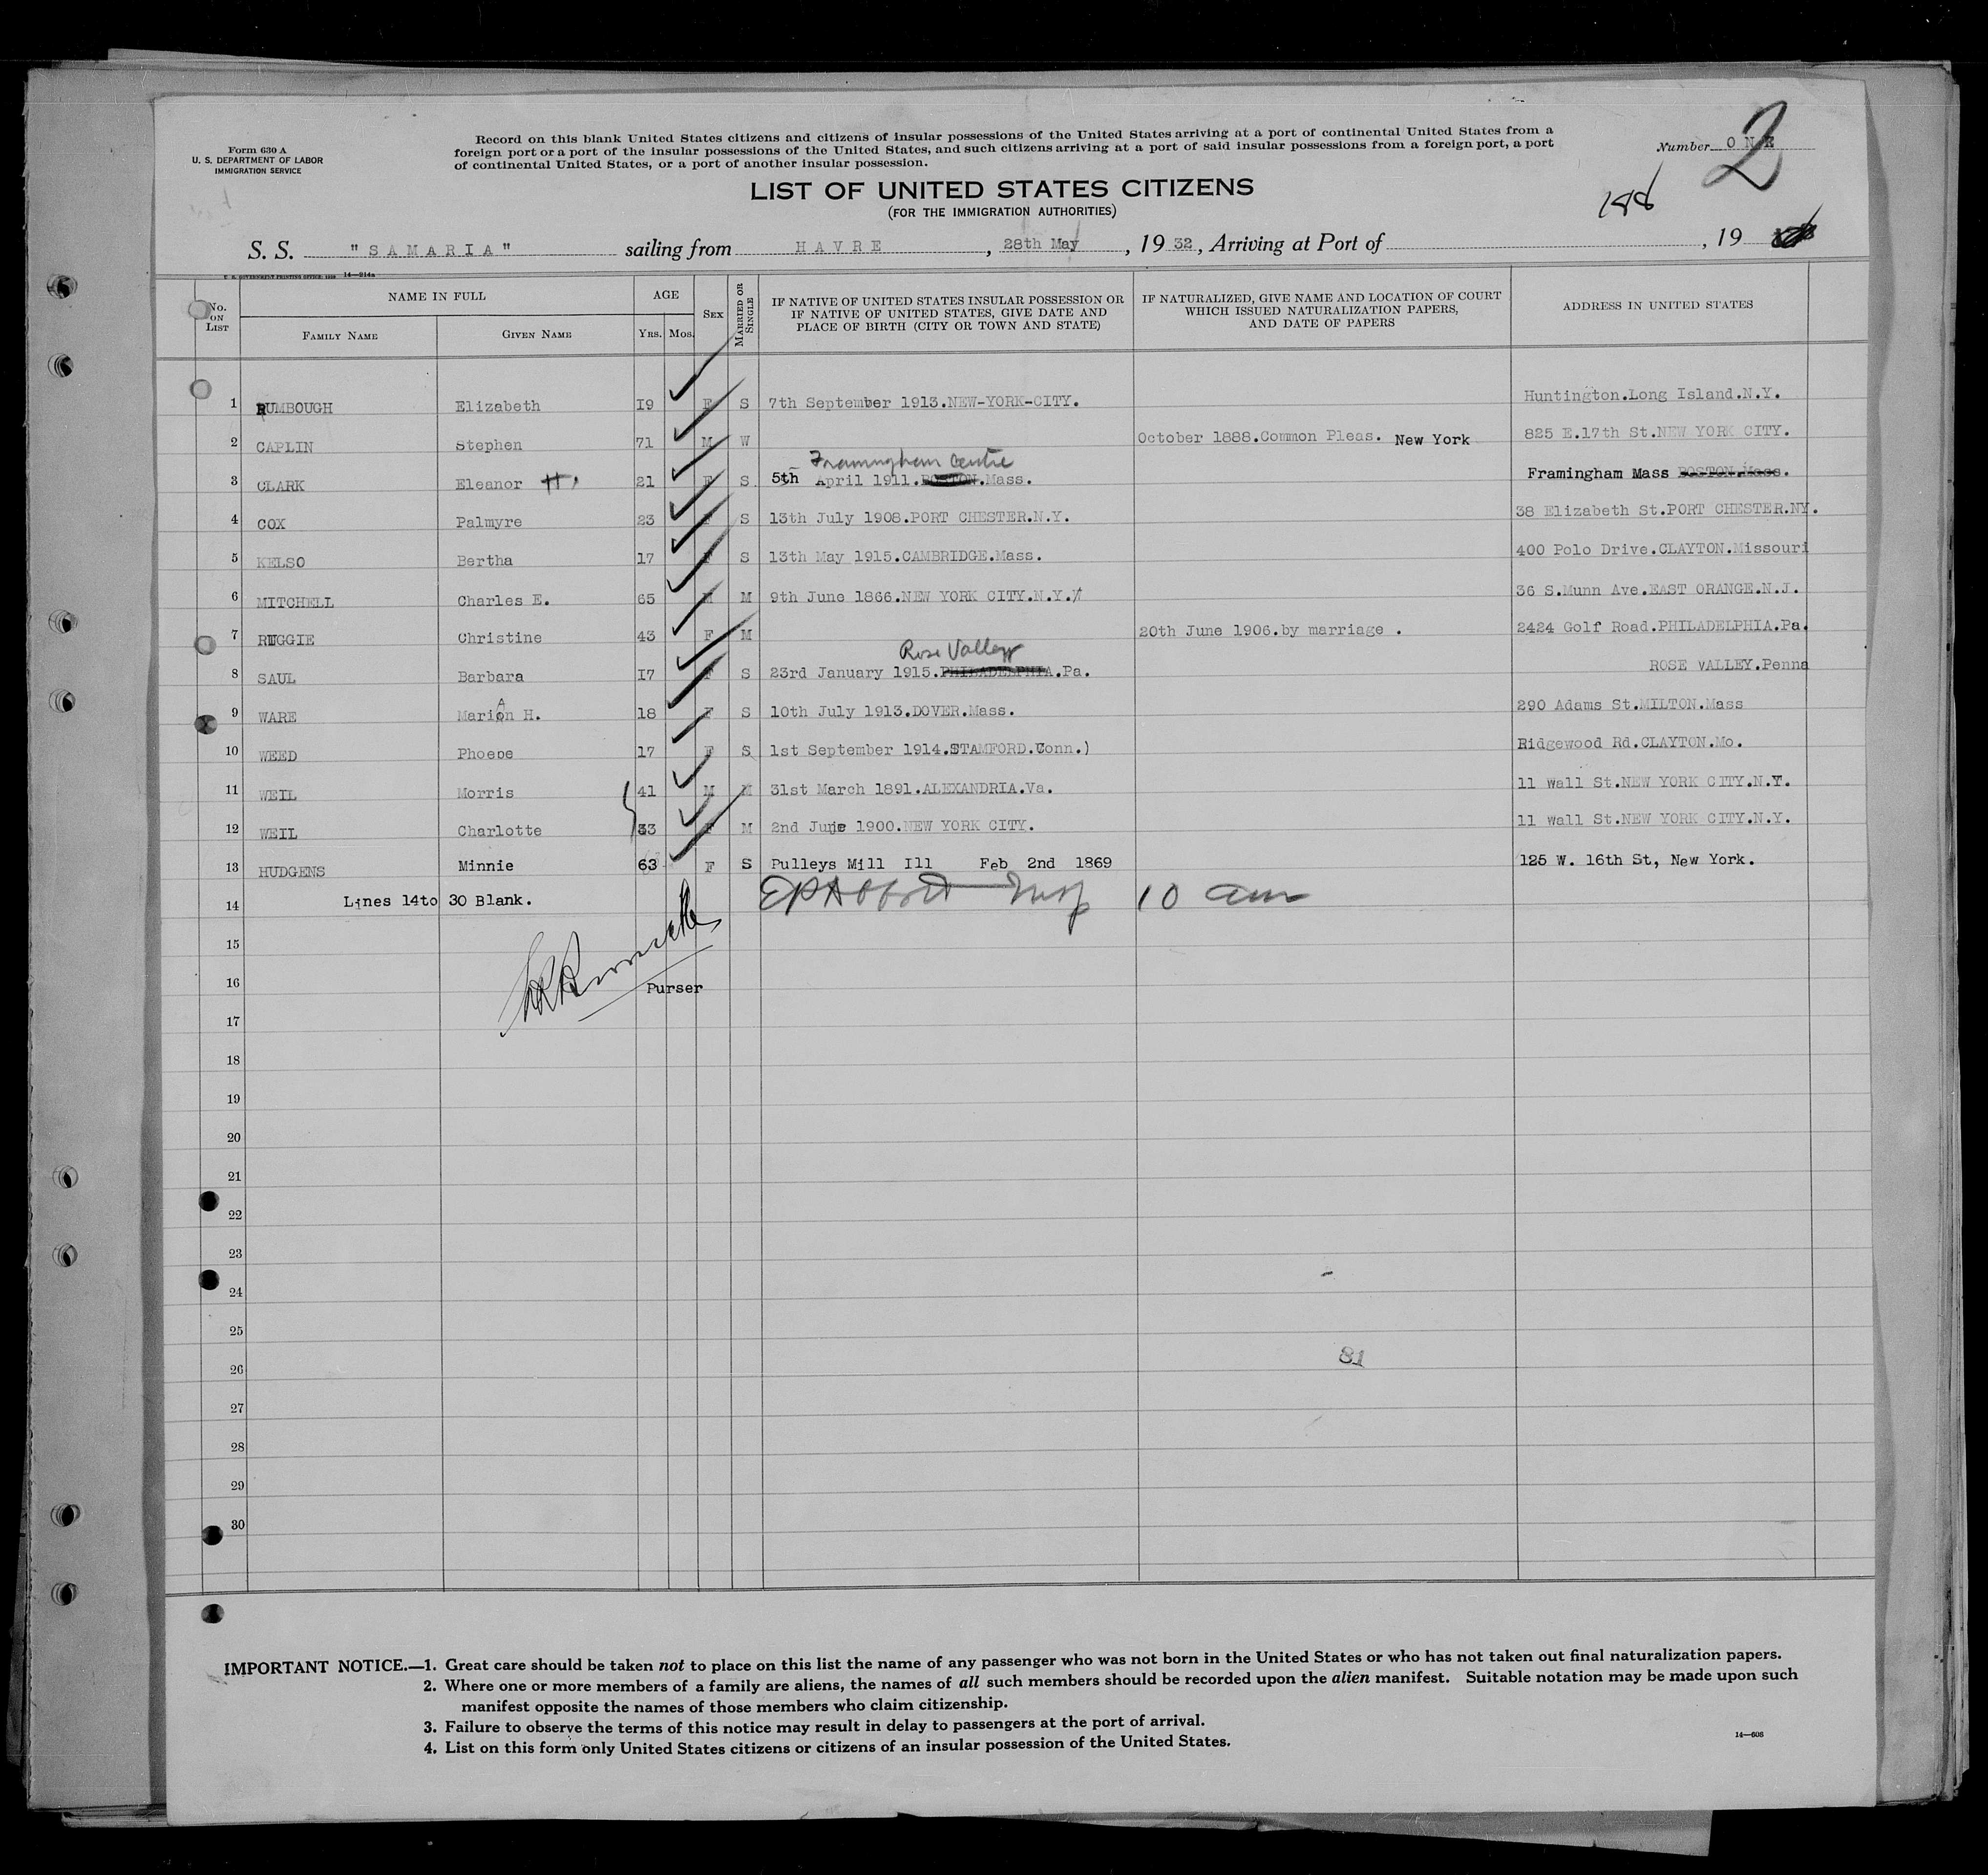 Form 630 A
U. S. DEPARTMENT OF LABOR
IMMIGRATION SERVICE
Record on this blank United States citizens and citizens of insular possessions of the United States arriving at a port of continental United States from a
foreign port or a port of the insular possessions of the United States, and such citizens arriving at a port of said insular possessions from a foreign port, a port
of continental United States, or a port of another insular possession.
Number O N E
2
LIST OF UNITED STATES CITIZENS
(FOR THE IMMIGRATION AUTHORITIES)
188
S. S. "SAMARIA" sailing from HAVRE, 28th May, 19 32, Arriving at Port of , 19
U. S. GOVERNMENT PRINTING OFFICE: 1929 14—214a
No. ON LIST NAME IN FULL AGE SEX MARRIED OR SINGLE IF NATIVE OF UNITED STATES INSULAR POSSESSION OR IF NATIVE OF UNITED STATES, GIVE DATE AND PLACE OF BIRTH (CITY OR TOWN AND STATE) IF NATURALIZED, GIVE NAME AND LOCATION OF COURT WHICH ISSUED NATURALIZATION PAPERS, AND DATE OF PAPERS ADDRESS IN UNITED STATES
FAMILY NAME GIVEN NAME YRS. MOS.
1 RUMBOUGH Elizabeth I9 F S 7th September 1913.NEW-YORK-CITY. Huntington.Long Island.N.Y.
2 CAPLIN Stephen 71 M W October 1888.Common Pleas. New York 825 E.17th St.NEW YORK CITY.
Framingham Centre
3 CLARK Eleanor H. 21 F S 5th April 1911.BOSTON.Mass. Framingham Mass BOSTON.Mass.
4 COX Palmyre 23 F S 13th July 1908.PORT CHESTER.N.Y. 38 Elizabeth St.PORT CHESTER.NY.
5 KELSO Bertha 17 F S 13th May 1915.CAMBRIDGE.Mass. 400 Polo Drive.CLAYTON.Missouri
6 MITCHELL Charles E. 65 M M 9th June 1866.NEW YORK CITY.N.Y. 36 S.Munn Ave.EAST ORANGE.N.J.
7 RUGGIE Christine 43 F M 20th June 1906.by marriage . 2424 Golf Road.PHILADELPHIA.Pa.
Rose Valley
8 SAUL Barbara I7 F S 23rd January 1915.PHILADELPHIA.Pa. ROSE VALLEY.Penna
A
9 WARE Marion H. 18 F S 10th July 1913.DOVER.Mass. 290 Adams St.MILTON.Mass
10 WEED Phoebe 17 F S 1st September 1914.STAMFORD.Conn.) Ridgewood Rd.CLAYTON.Mo.
11 WEIL Morris 41 M M 31st March 1891.ALEXANDRIA.Va. 11 Wall St.NEW YORK CITY.N.Y.
12 WEIL Charlotte 33 F M 2nd June 1900.NEW YORK CITY. 11 Wall St.NEW YORK CITY.N.Y.
13 HUDGENS Minnie 63 F S Pulleys Mill Ill Feb 2nd 1869 125 W. 16th St, New York.
14 Lines 14to 30 Blank. Insp 10 am
15
16 Purser
17
18
19
20
21
22
23
24
25
26 81
27
28
29
30
IMPORTANT NOTICE.—1. Great care should be taken not to place on this list the name of any passenger who was not born in the United States or who has not taken out final naturalization papers.
2. Where one or more members of a family are aliens, the names of all such members should be recorded upon the alien manifest. Suitable notation may be made upon such
manifest opposite the names of those members who claim citizenship.
3. Failure to observe the terms of this notice may result in delay to passengers at the port of arrival.
4. List on this form only United States citizens or citizens of an insular possession of the United States.
14—608